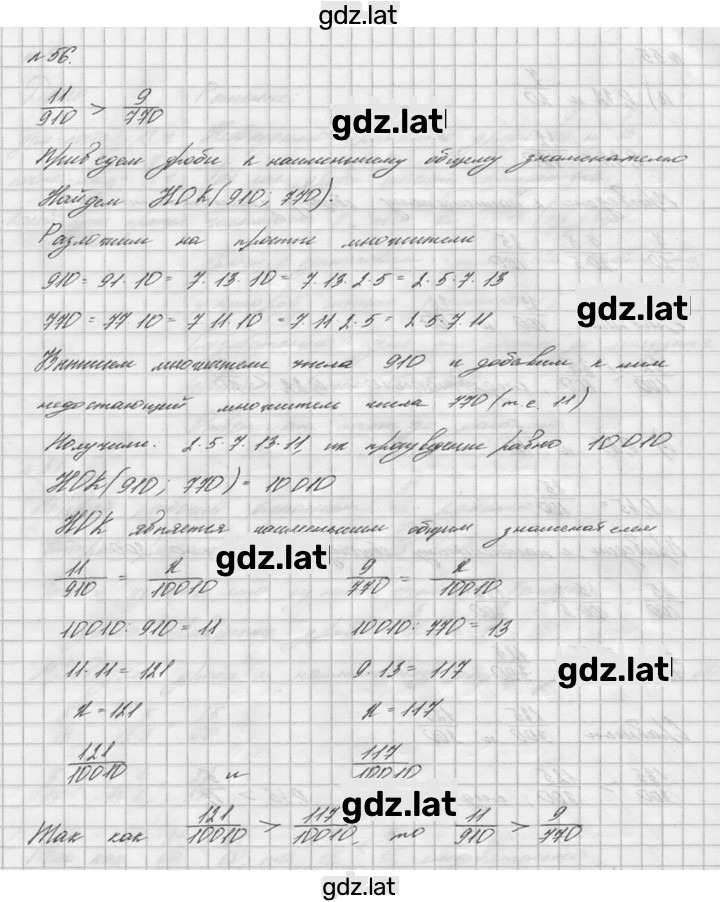 gdz.lat
№ 56.
11/910 > 9/770
gdz.lat
Приведем дроби к наименьшему общему знаменателю
Найдем НОК(910; 770).
Разложим на простые множители
910 = 91·10 = 7·13·10 = 7·13·2·5 = 2·5·7·13
gdz.lat
770 = 77·10 = 7·11·10 = 7·11·2·5 = 2·5·7·11
Выпишем множители числа 910 и добавим к ним
недостающий множитель числа 770 (т.е. 11)
Получили: 2·5·7·13·11, их произведение равно 10010
НОК(910; 770) = 10010
НОК является наименьшим общим знаменателем
gdz.lat
11/910 = x/10010 9/770 = x/10010
10010 : 910 = 11 10010 : 770 = 13
11·11 = 121 9·13 = 117
gdz.lat
x = 121 x = 117
121/10010 и 117/10010
gdz.lat
Так как 121/10010 > 117/10010, то 11/910 > 9/770
gdz.lat